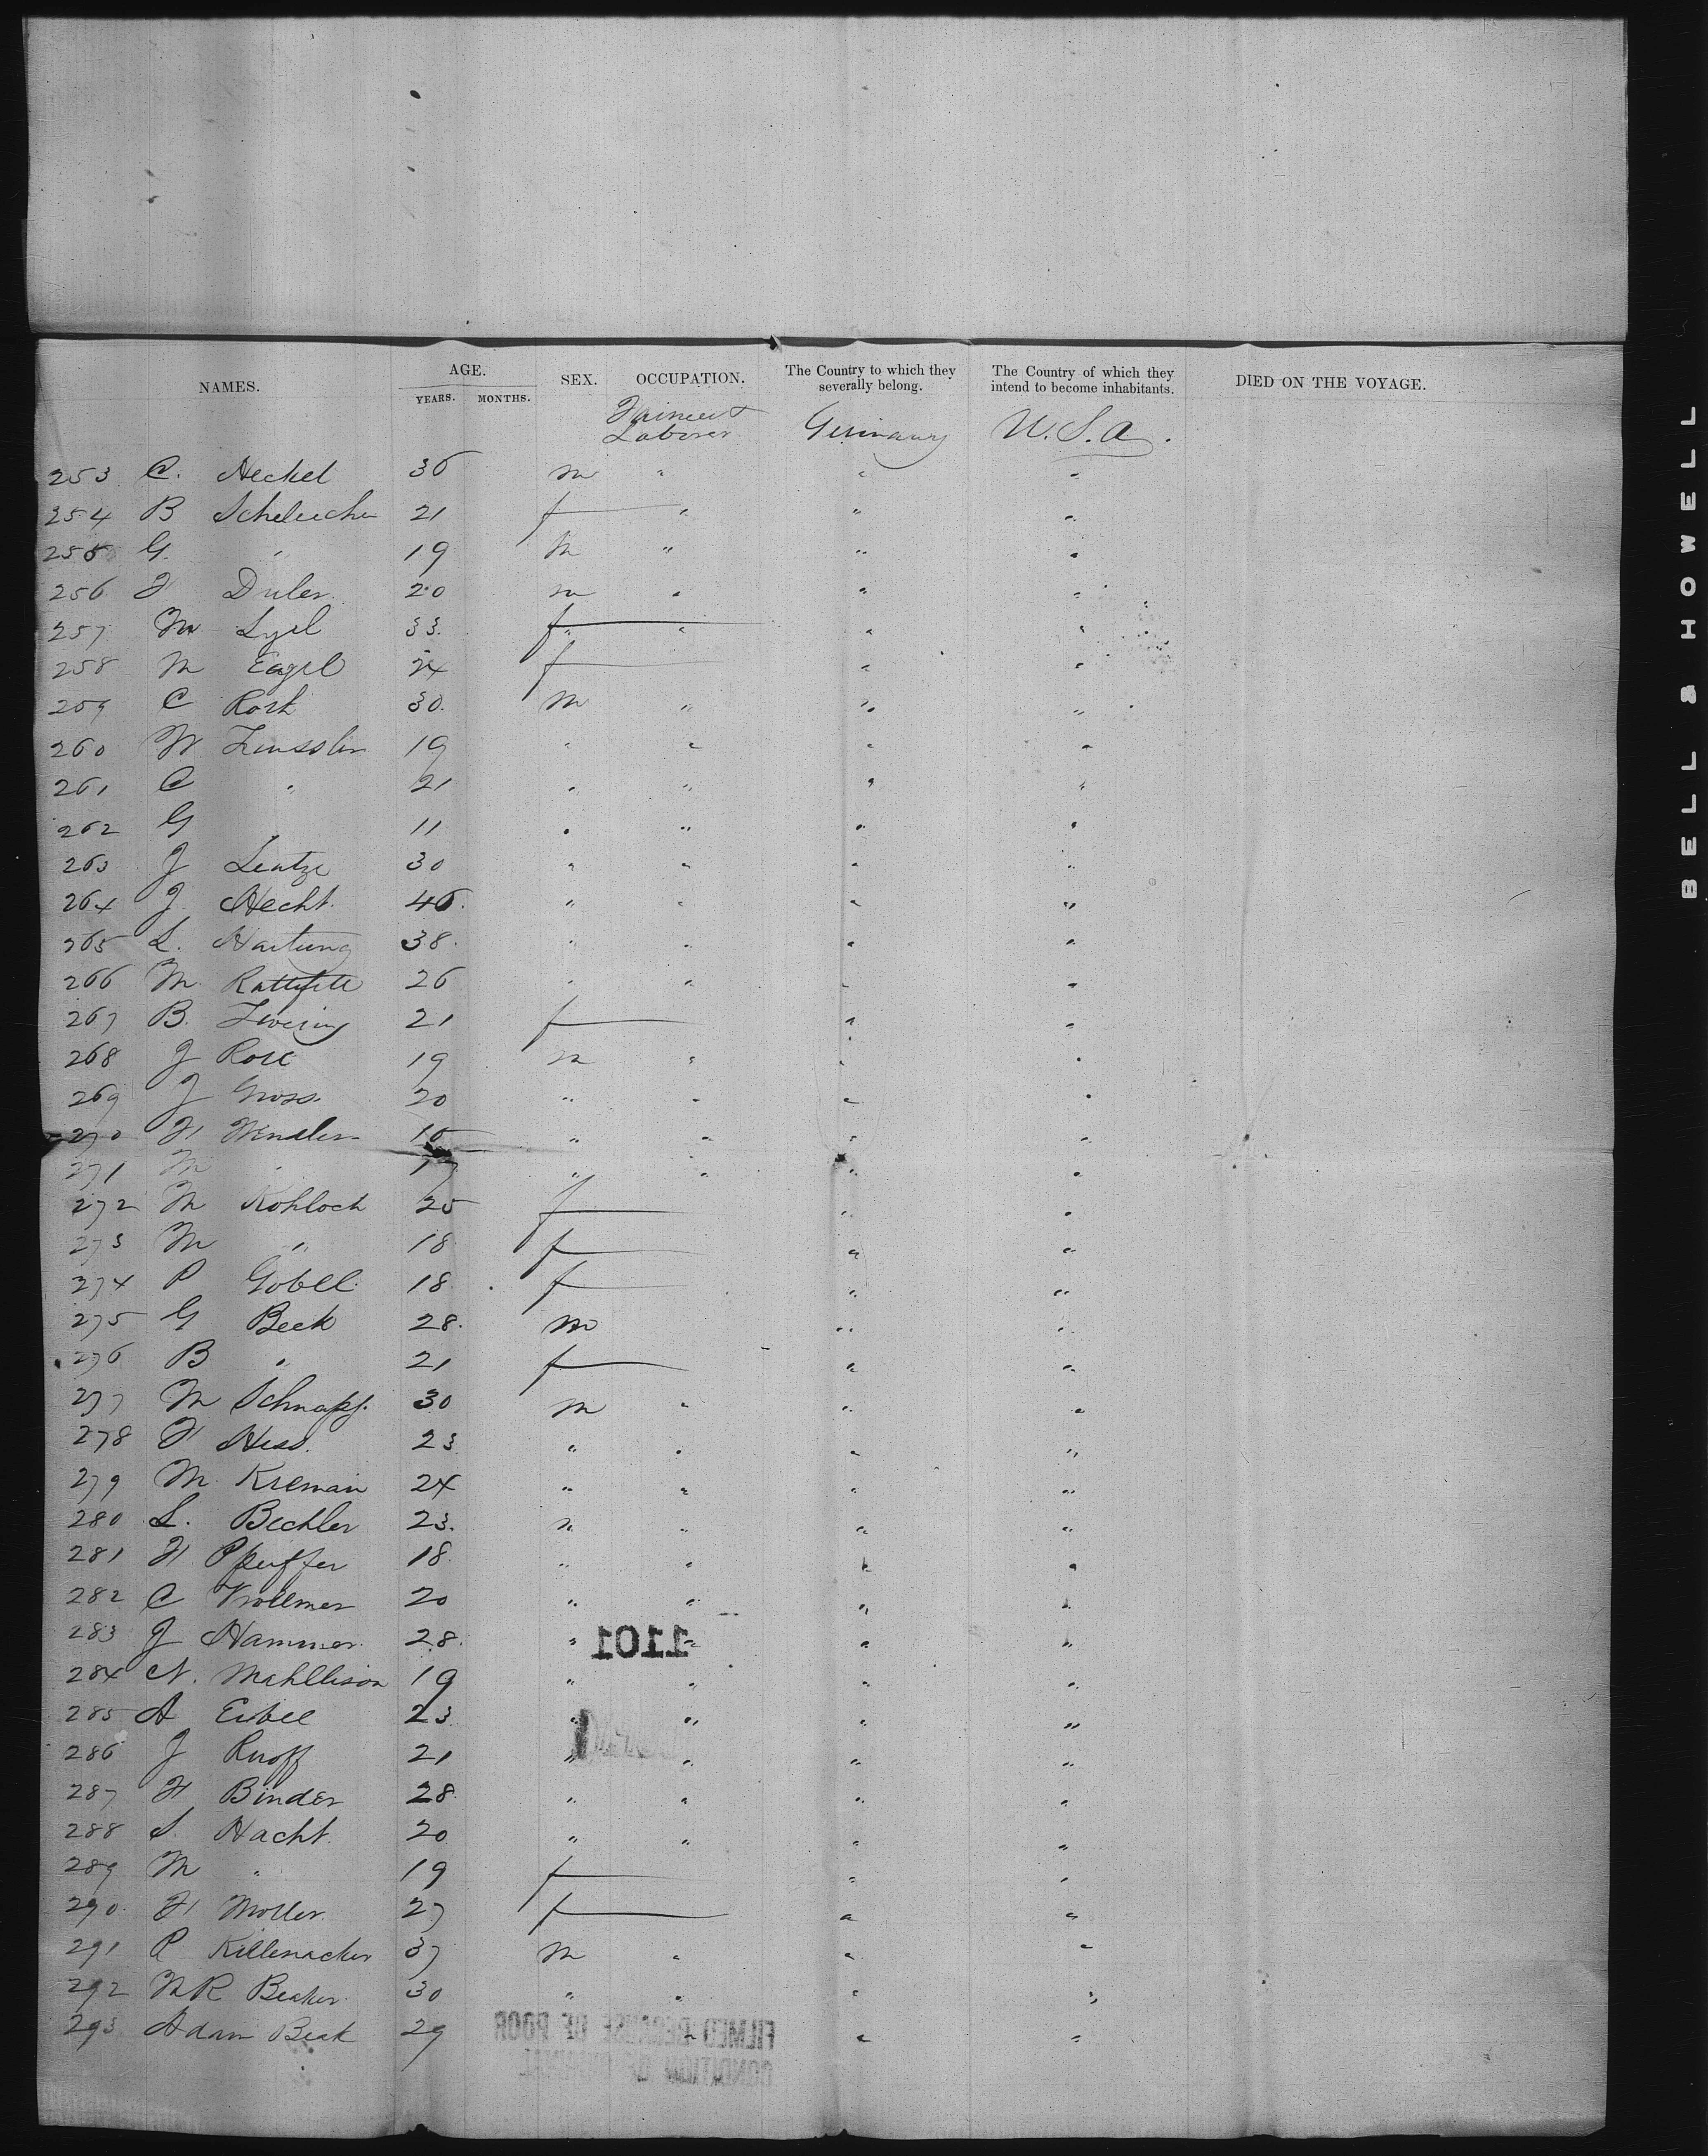 NAMES. AGE. YEARS. MONTHS. SEX. OCCUPATION. The Country to which they severally belong. The Country of which they intend to become inhabitants. DIED ON THE VOYAGE.
Laborer Germany U.S.A.
253 C. Heckel 36 m " " "
254 B 21 f " " "
255 G. " 19 m " " "
256 F Duler 20 m " " "
257 M Lyel 33. f " " "
258 M Eagel 24 f " "
259 C Rost 30. m " " "
260 W 19 " " " "
261 C " 21 " " " "
262 G 11 " " " "
263 J Lentze 30 " " " "
264 J. Hecht. 46. " " " "
265 L. Hartung 38. " " " "
266 M 26 " " " "
267 B. 21 f " "
268 J Rose 19 m " " "
269 J Gross. 20 " " " "
270 F Wendler 15 " " " "
271 M " 17 " " " "
272 M Kohloch 25 f " "
273 M " 18 f " "
274 P Gobel. 18. f " "
275 G Beck 28. m " "
276 B " 21 f " "
277 M Schnapf. 30 m " " "
278 F Hess. 23 " " " "
279 M Kreman 24 " " " "
280 L. Bechler 23. " " " "
281 F Pfeuffer 18. " " " "
282 C Vrollmer 20 " " " "
283 J Hammer. 28. " " " "
1101
284 N. 19 " " " "
285 A Eibel 23 " " " "
286 J Ruoff 21 " " " "
287 F Binder 28. " " " "
288 S. Hacht. 20 " " " "
289 M " 19 f " "
290. F Moller. 27 f " "
291 P Killenacker 37 m " " "
292 M R Beaker. 30 " " " "
293 Adam Beak 29 " " "
FILMED BECAUSE OF POOR
CONDITION OF ORIGINAL
BELL & HOWELL